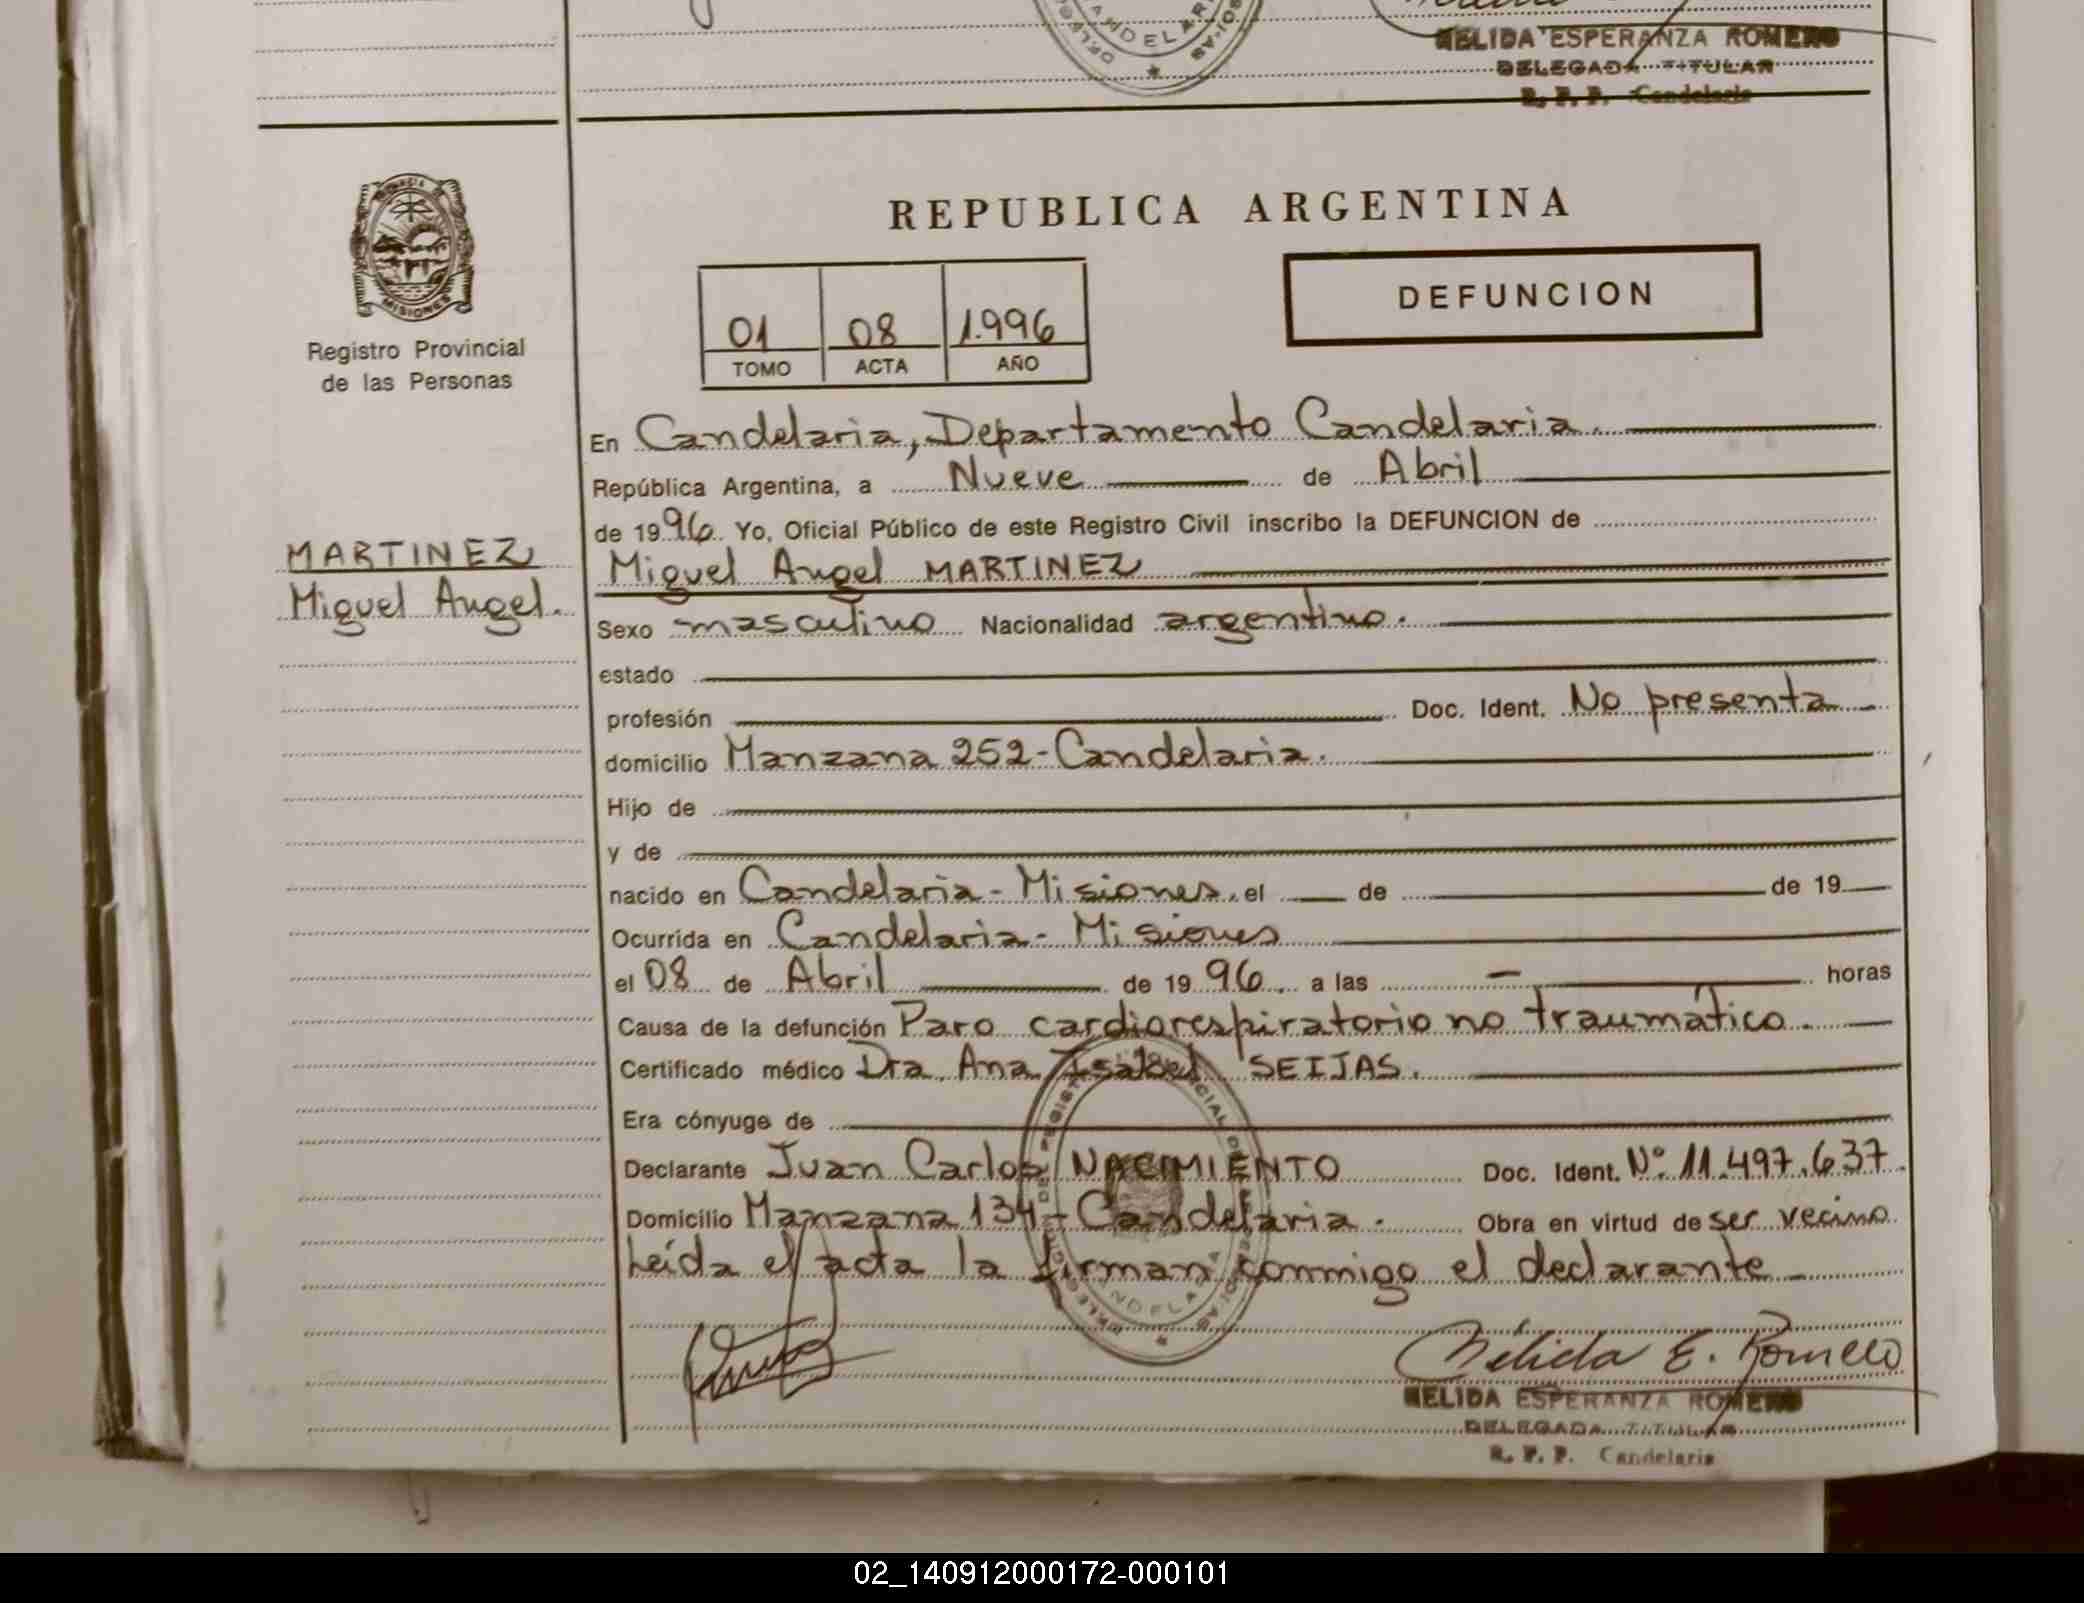 NELIDA ESPERANZA ROMERO
DELEGADA TITULAR
R. P. P. Candelaria
MISIONES
Registro Provincial
de las Personas
REPUBLICA ARGENTINA
DEFUNCION
01 08 1.996
TOMO ACTA AÑO
En Candelaria, Departamento Candelaria.
República Argentina, a Nueve de Abril
de 1996 Yo, Oficial Público de este Registro Civil inscribo la DEFUNCION de
MARTINEZ
Miguel Angel.
Miguel Angel MARTINEZ
Sexo masculino Nacionalidad argentino.
estado
profesión Doc. Ident. No presenta
domicilio Manzana 252-Candelaria.
Hijo de
y de
nacido en Candelaria - Misiones. el de de 19
Ocurrida en Candelaria - Misiones
el 08 de Abril de 1996. a las - horas
Causa de la defunción Paro cardiorespiratorio no traumático.
Certificado médico Dra. Ana Isabel SEIJAS.
Era cónyuge de
Declarante Juan Carlos NACIMIENTO Doc. Ident. Nº 11.497.637
Domicilio Manzana 134 - Candelaria. Obra en virtud de ser vecino
Leída el acta la firman conmigo el declarante
Nélida E. Romero
NELIDA ESPERANZA ROMERO
DELEGADA TITULAR
R. P. P. Candelaria
02_140912000172-000101